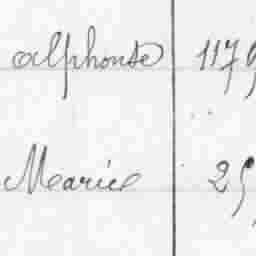 alphonse 1179
Marie 25